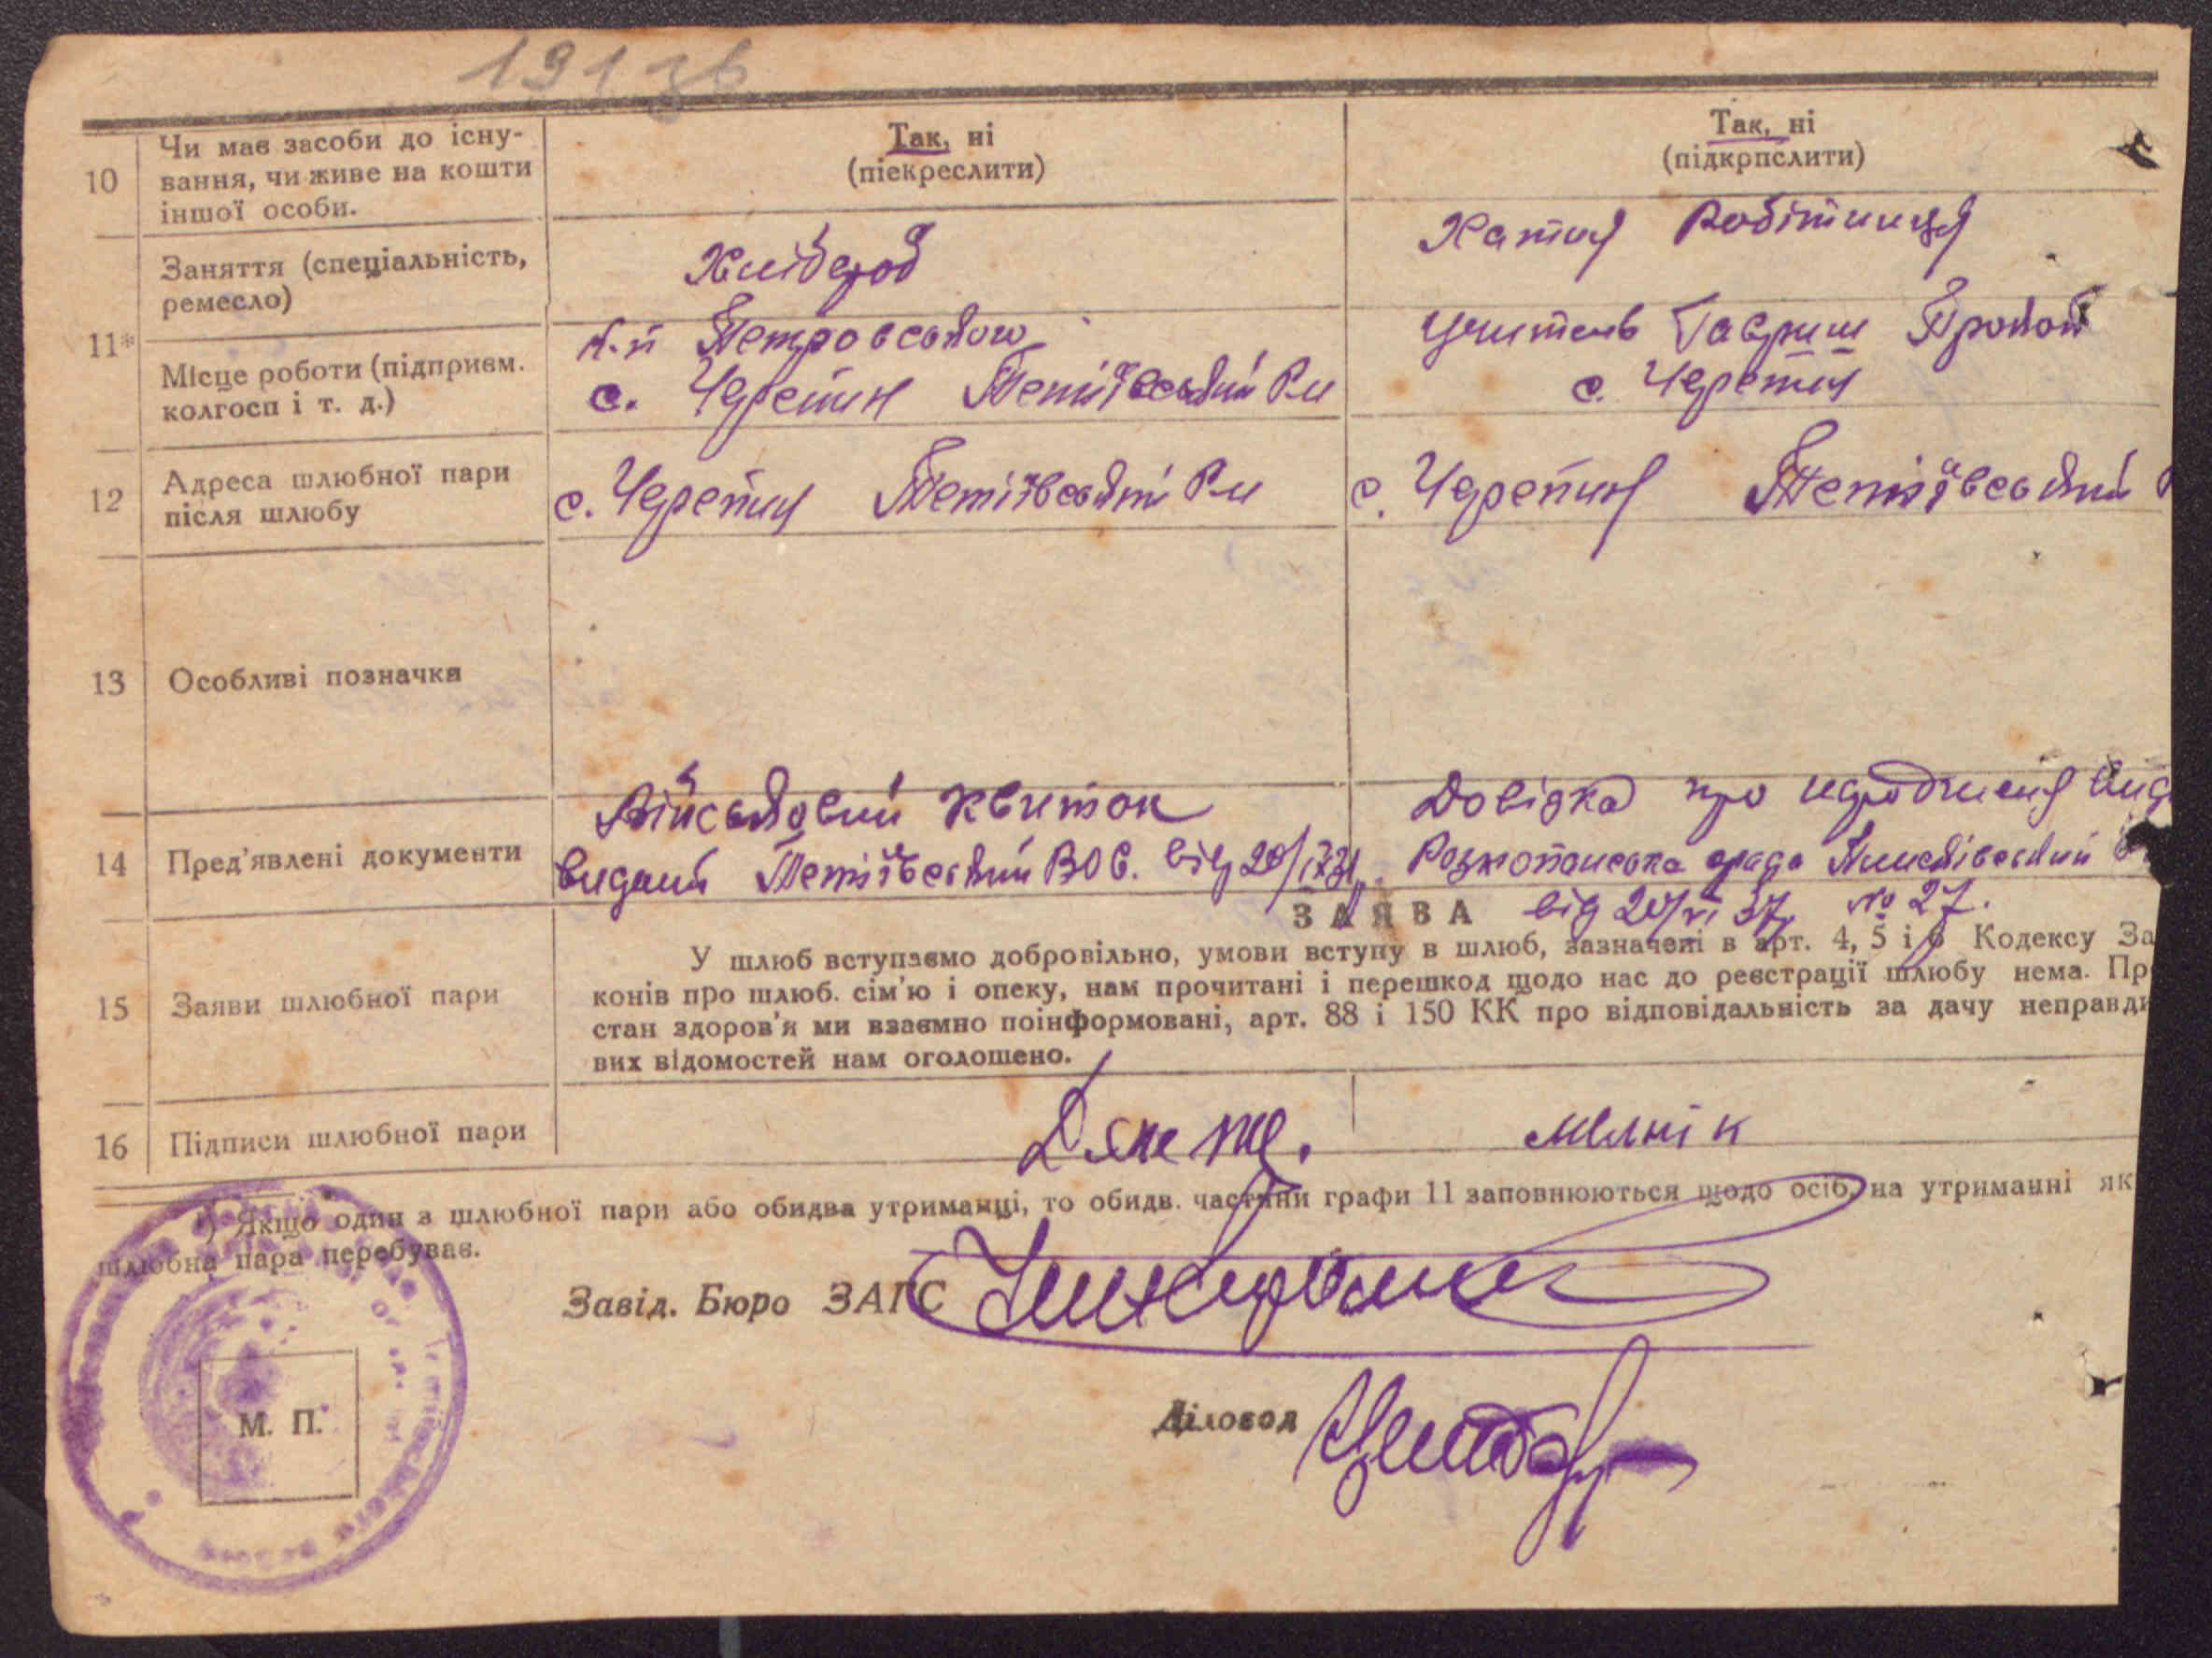 191 зв
10
Чи має засоби до існу-
вання, чи живе на кошти
іншої особи.
Так, ні
(піекреслити)
Так, ні
(підкрпслити)
11*
Заняття (спеціальність,
ремесло)
Хлібороб
Хатня Робітниця
Місце роботи (підприєм.
колгосп і т. д.)
Петровського
с. Черепин Тетіївський Р-н
учитель Гавриш Прокоп
с. Черепин
12
Адреса шлюбної пари
після шлюбу
с. Черепин Тетіївський Р-н
с. Черепин Тетіївський
13
Особливі позначки
14
Пред'явлені документи
Військовий Квиток
виданий Тетіївський ВОБ. від 20/
Довідка про народження
рада
від 20/VI 37 № 27.
15
Заяви шлюбної пари
ЗАЯВА
У шлюб вступаємо добровільно, умови вступу в шлюб, зазначені в арт. 4, 5 і 6 Кодексу За
конів про шлюб. сім'ю і опеку, нам прочитані і перешкод щодо нас до реєстрації шлюбу нема. Пр
стан здоров'я ми взаємно поінформовані, арт. 88 і 150 КК про відповідальність за дачу неправди
вих відомостей нам оголошено.
16
Підписи шлюбної пари
мельнік
*) Якщо один з шлюбної пари або обидва утриманці, то обидв. частини графи 11 заповнюються щодо осіб, на утриманні як
шлюбна пара перебуває.
Завід. Бюро ЗАГС
М. П.
Діловод